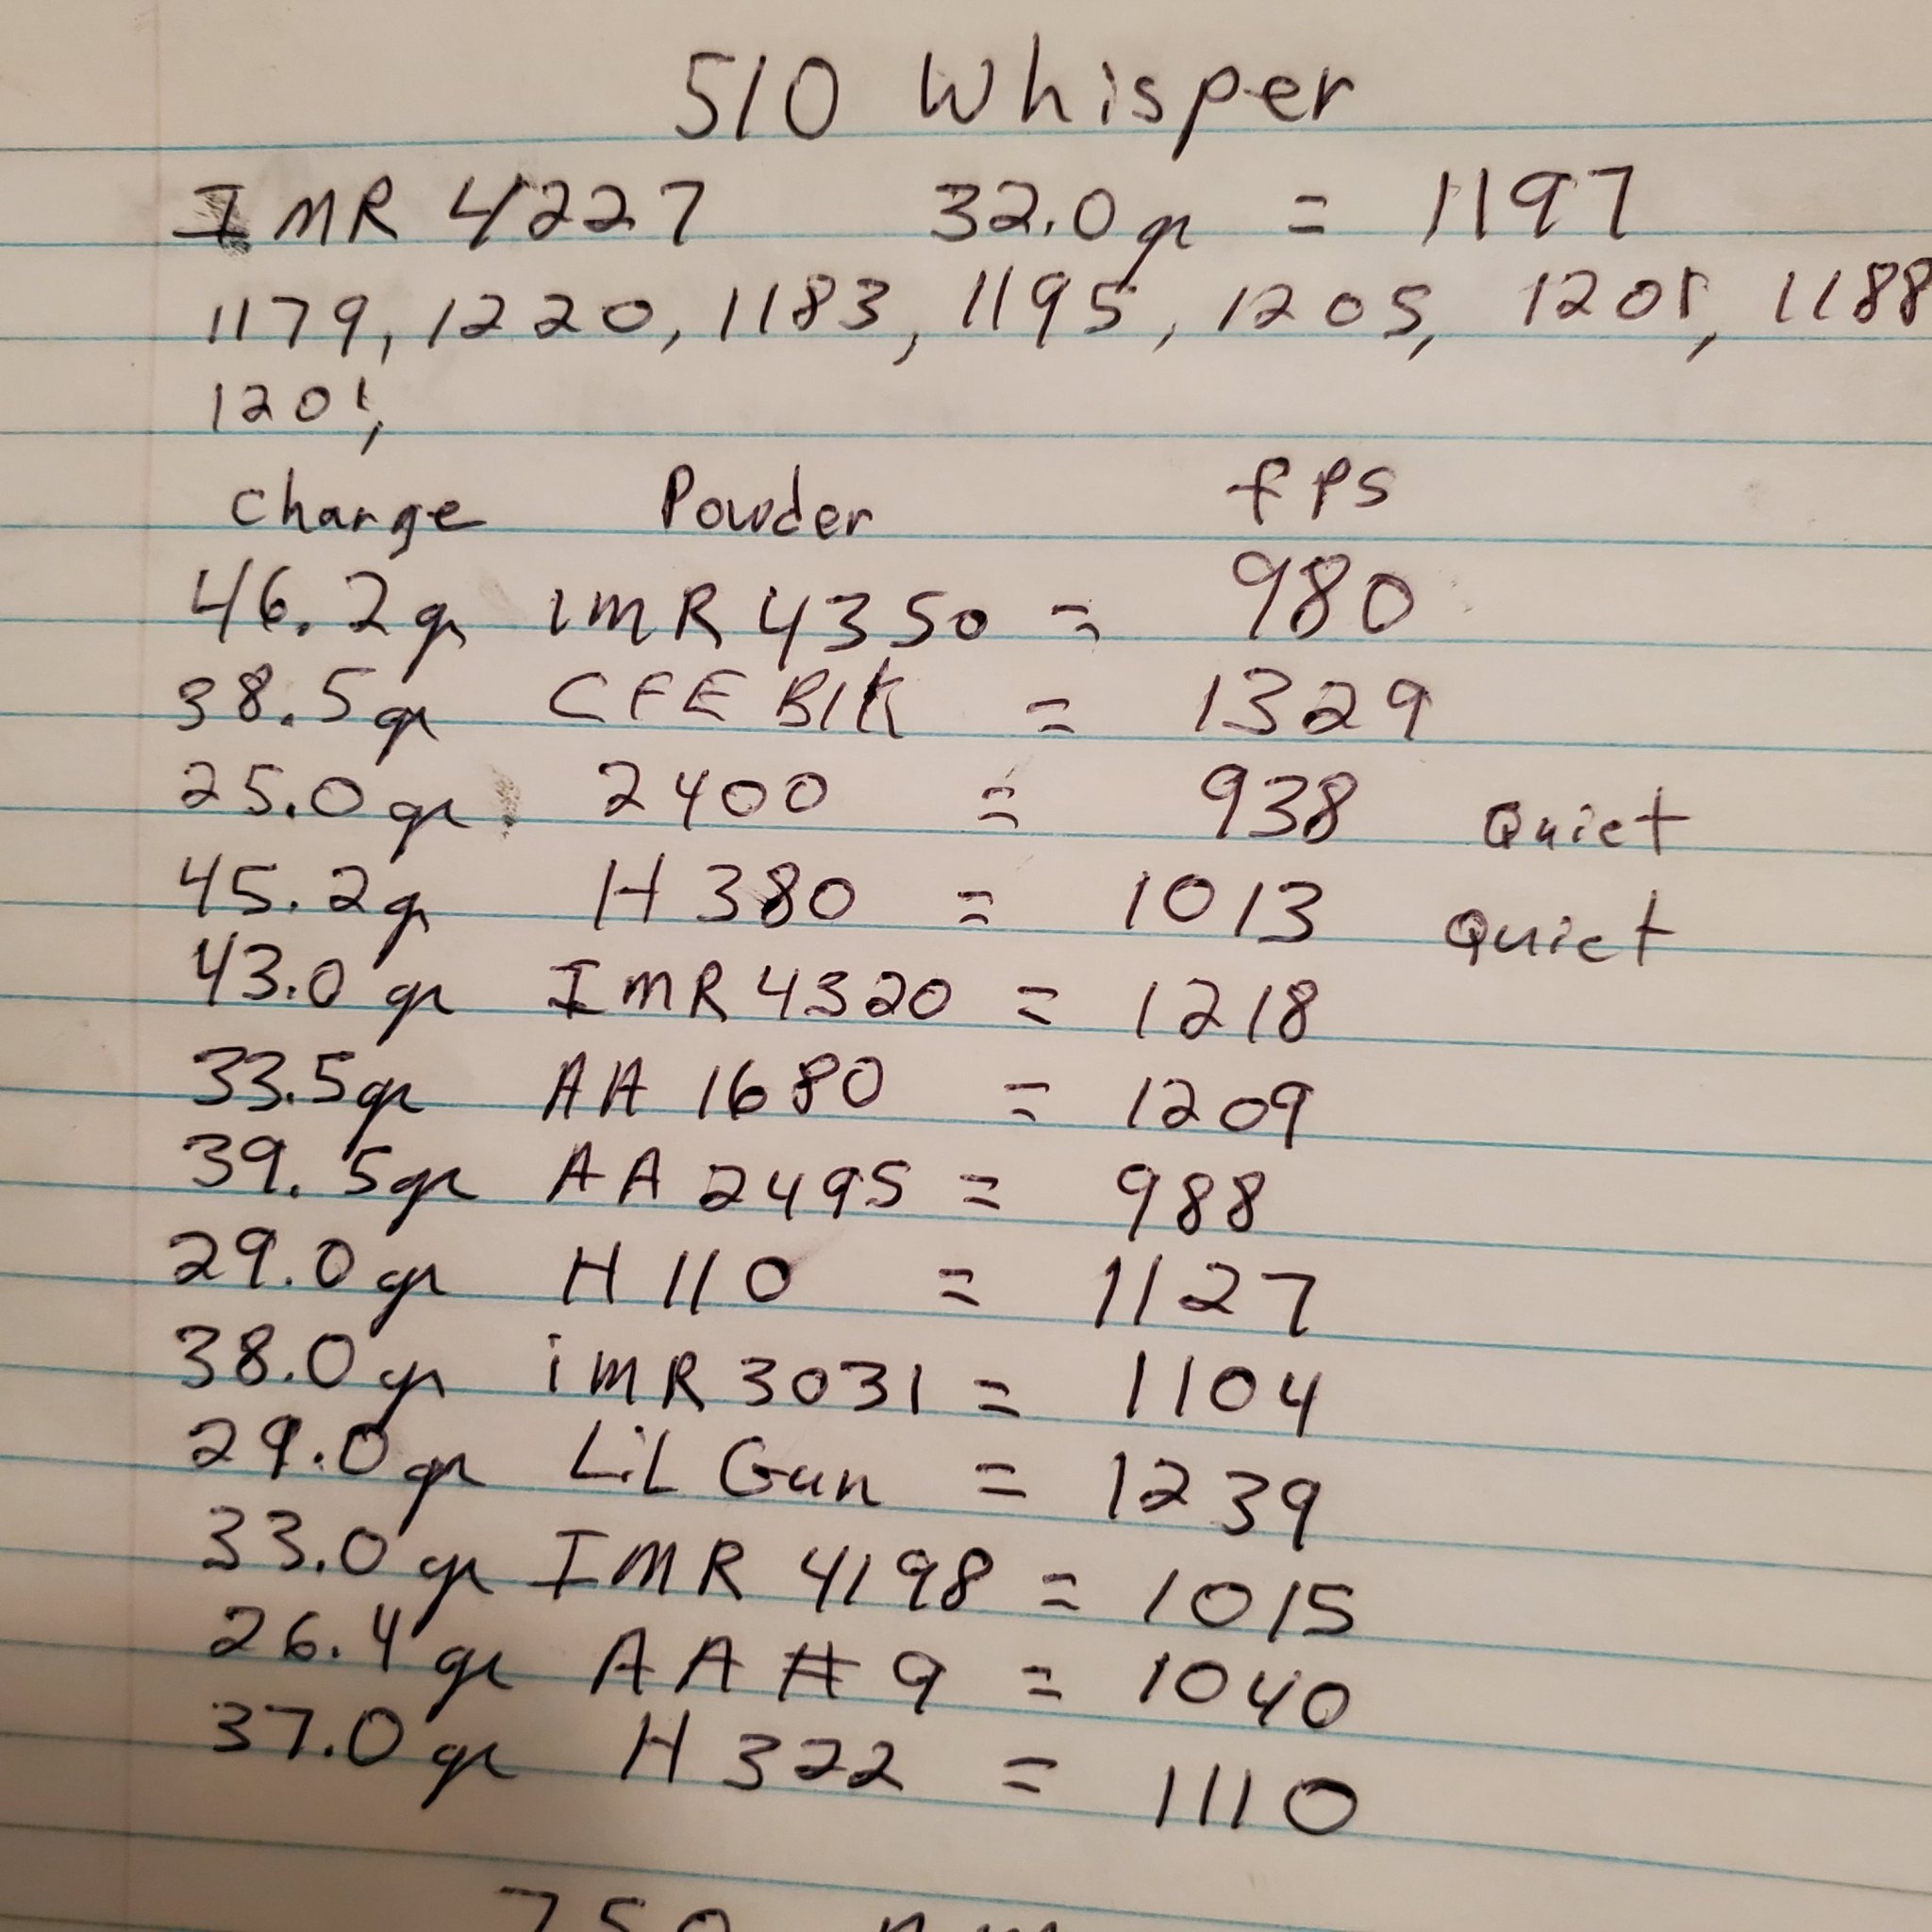 510 Whisper
IMR 4227 32.0 gr = 1197
1179, 1220, 1183, 1195, 1205, 1201, 1188
1201,
Charge Powder fps
46.2 gr IMR 4350 = 980
38.5 gr CFE Blk = 1329
25.0 gr 2400 = 938 Quiet
45.2 gr H 380 = 1013 Quiet
43.0 gr IMR 4320 = 1218
33.5 gr AA 1680 = 1209
39.5 gr AA 2495 = 988
29.0 gr H 110 = 1127
38.0 gr iMR 3031 = 1104
29.0 gr LiL Gun = 1239
33.0 gr IMR 4198 = 1015
26.4 gr AA # 9 = 1040
37.0 gr H 322 = 1110
750